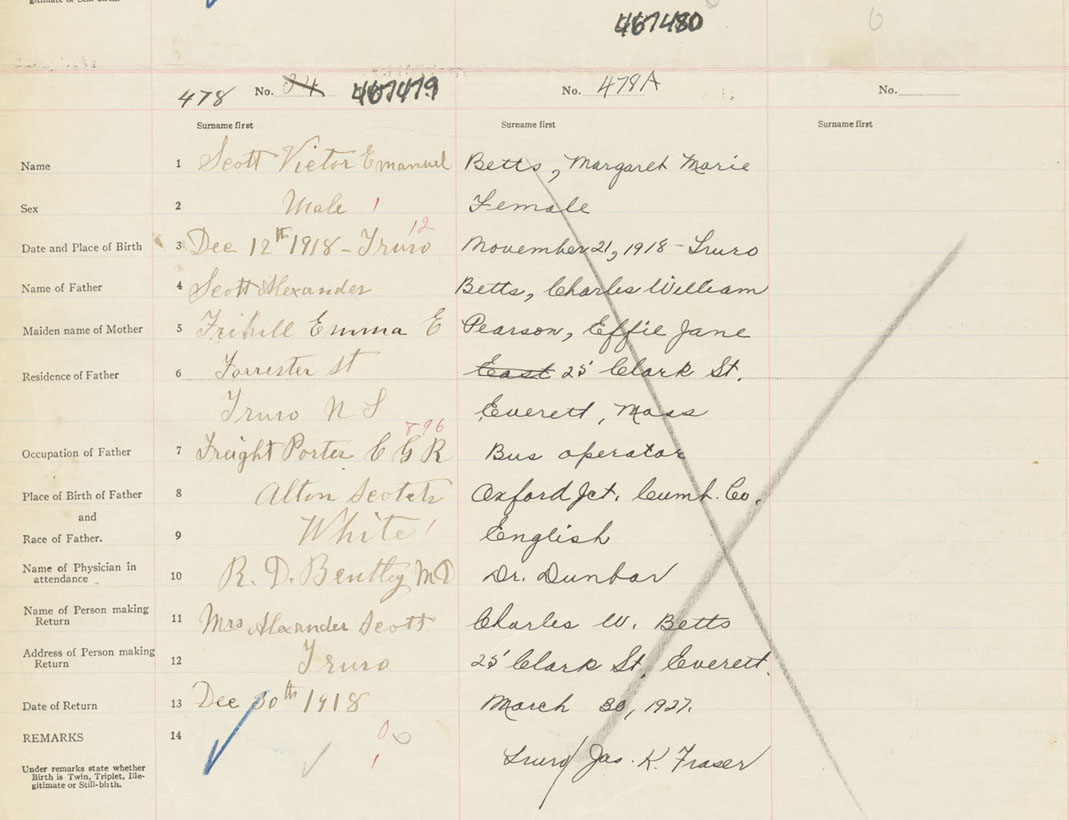 gitimate or Still-birth.
467480
6
478 No. 84 467479 No. 478A No.
Surname first Surname first Surname first
Name 1 Scott Victor Emanuel Betts, Margaret Marie
Sex 2 Male 1 Female
12
Date and Place of Birth 3 Dec 12th 1918 - Truro November 21, 1918 - Truro
Name of Father 4 Scott Alexander Betts, Charles William
Maiden name of Mother 5 Emma E Pearson, Effie Jane
Residence of Father 6 Forrester St East 25 Clark St.
Truro N S Everett, Mass
796
Occupation of Father 7 Freight Porter C G R Bus operator
Place of Birth of Father 8 Alton Oxford Jct. Cumb. Co.
and
Race of Father. 9 White 1 English
Name of Physician in
attendance 10 R. D. Bentley MD Dr. Dunbar
Name of Person making
Return 11 Mrs Alexander Scott Charles W. Betts
Address of Person making
Return 12 Truro 25 Clark St, Everett.
Date of Return 13 Dec 30th 1918 March 30, 1927.
REMARKS 14
Under remarks state whether
Birth is Twin, Triplet, Ille-
gitimate or Still-birth.
Truro / Jas. K. Fraser